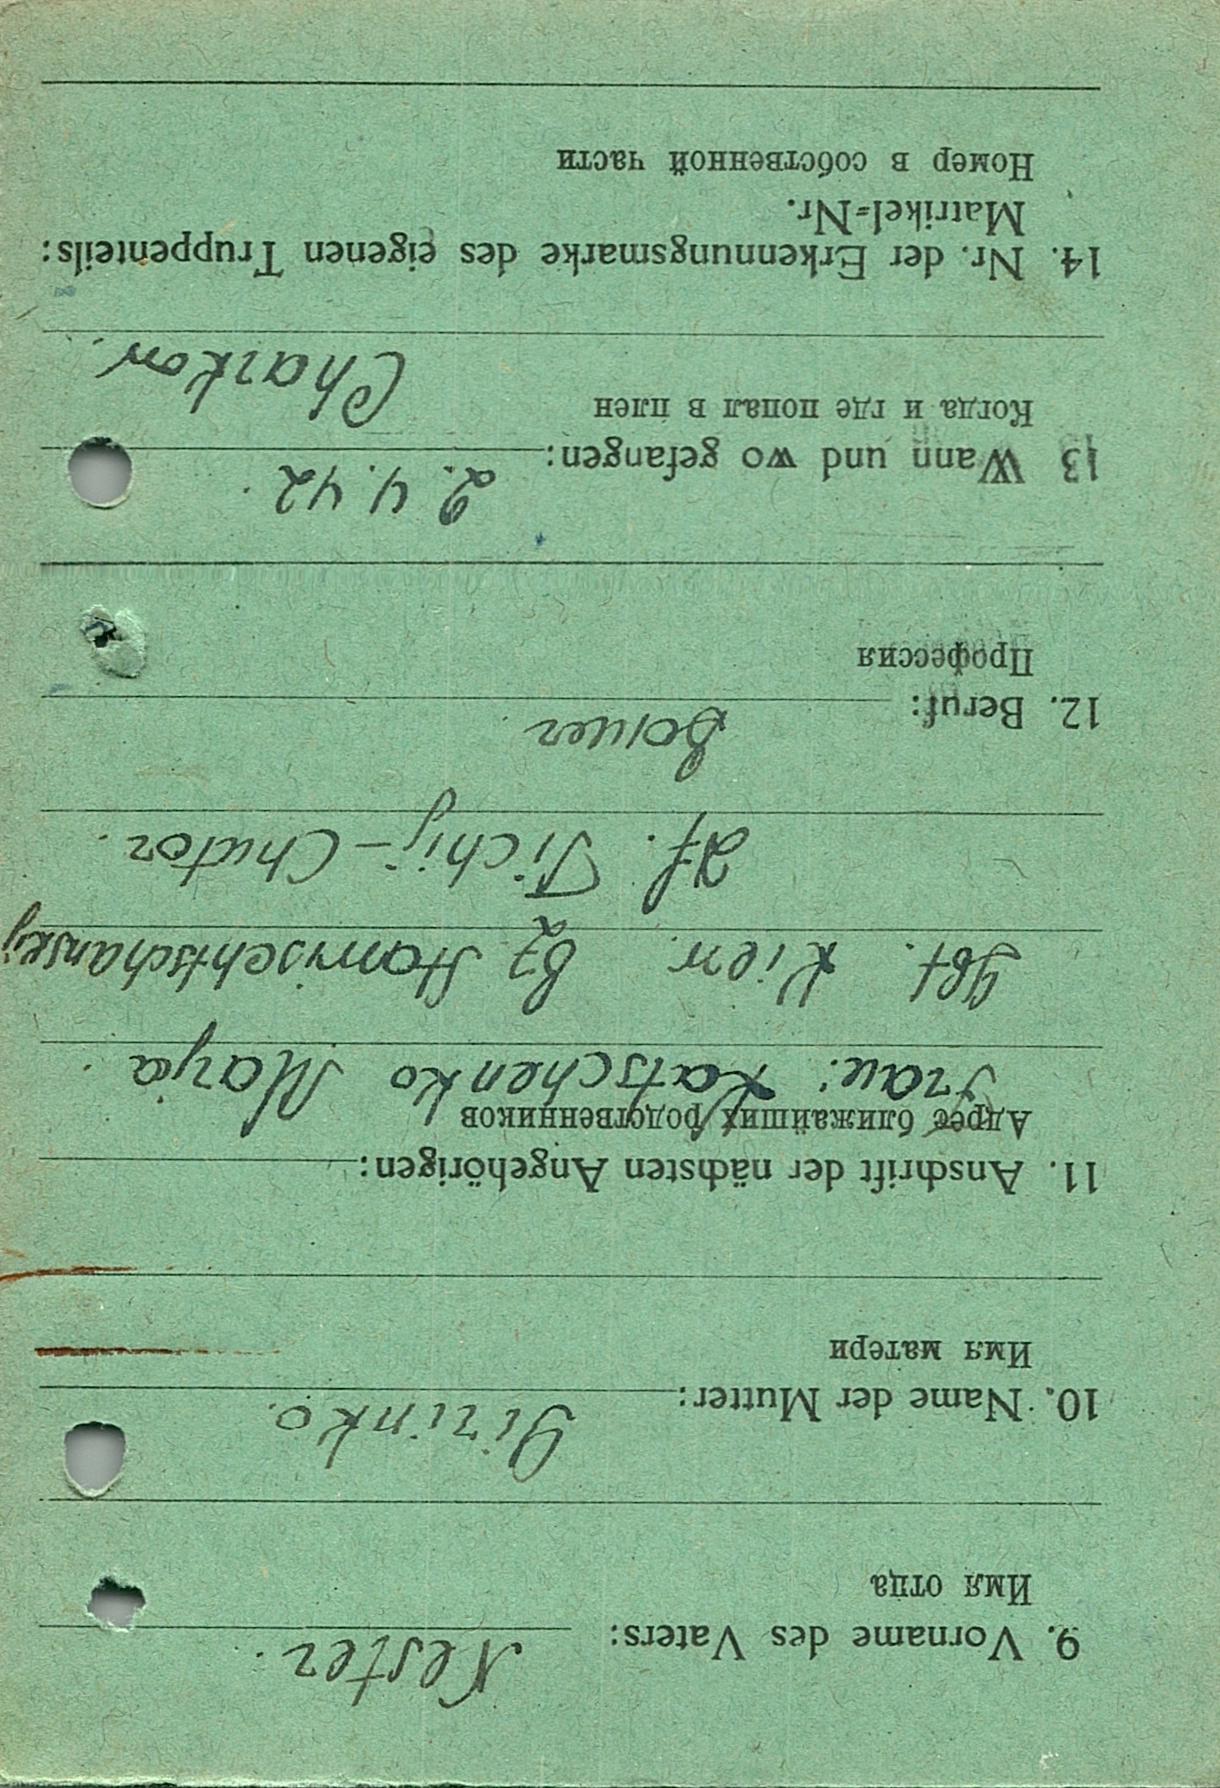 9. Vorname des Vaters: Nester.
Имя отца
10. Name der Mutter: Girinko.
Имя матери
11. Anschrift der nächsten Angehörigen:
Адрес ближайших родственников
Frau: Katschenko Marja.
Gbt. Kiew. Bz
Df. Tichij-Chutor.
12. Beruf: Bauer
Профессия
13 Wann und wo gefangen: 2.4.42.
Когда и где попал в плен Charkow.
14. Nr. der Erkennungsmarke des eigenen Truppenteils:
Matrikel=Nr.
Номер в собственной части